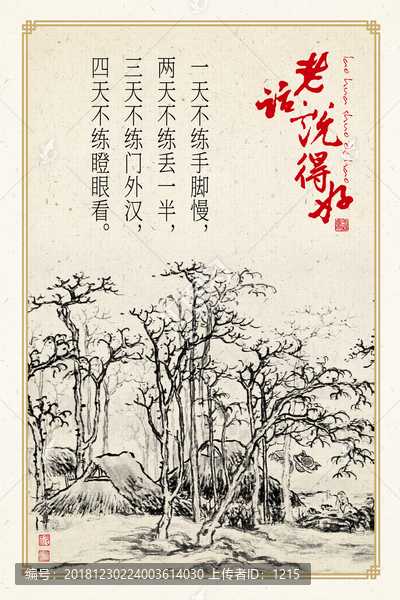 老话说得好
lao hua shuo de hao
一天不练手脚慢，
两天不练丢一半，
三天不练门外汉，
四天不练瞪眼看。
编号：20181230224003614030 上传者ID：1215